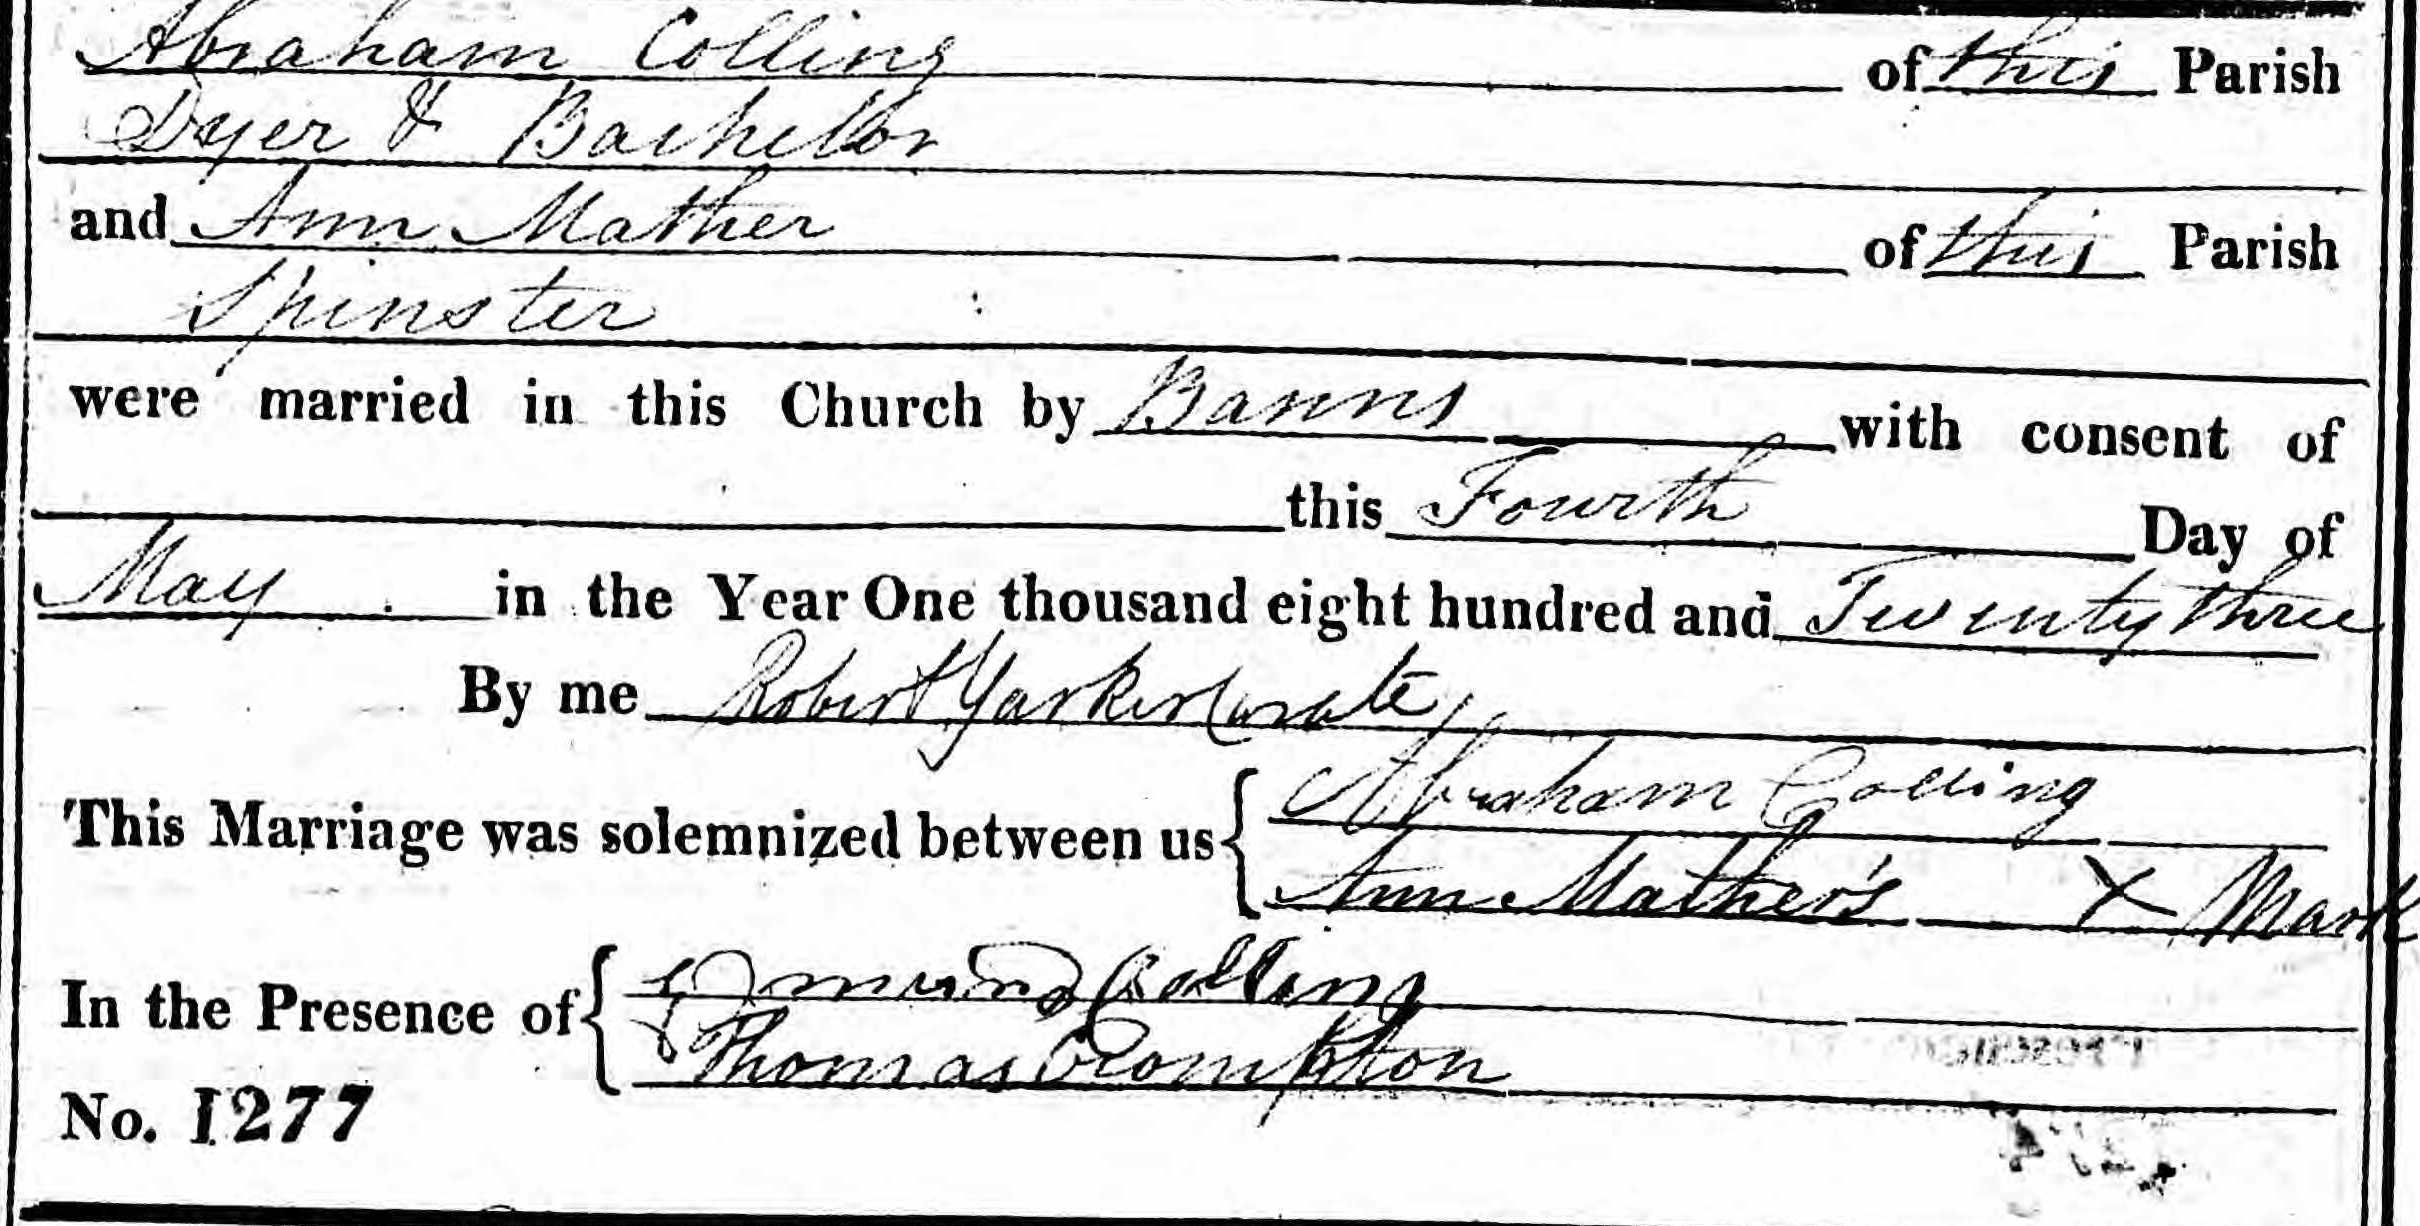 Abraham Colling of this Parish
Dyer & Bachelor
and Ann Mather of this Parish
Spinster
were married in this Church by Banns with consent of
this Fourth Day of
May in the Year One thousand eight hundred and Twenty three
By me Robert Yarker Curate
This Marriage was solemnized between us { Abraham Colling
Ann Mather's X Mark
In the Presence of { Edmund Colling
Thomas Crompton
No. 1277